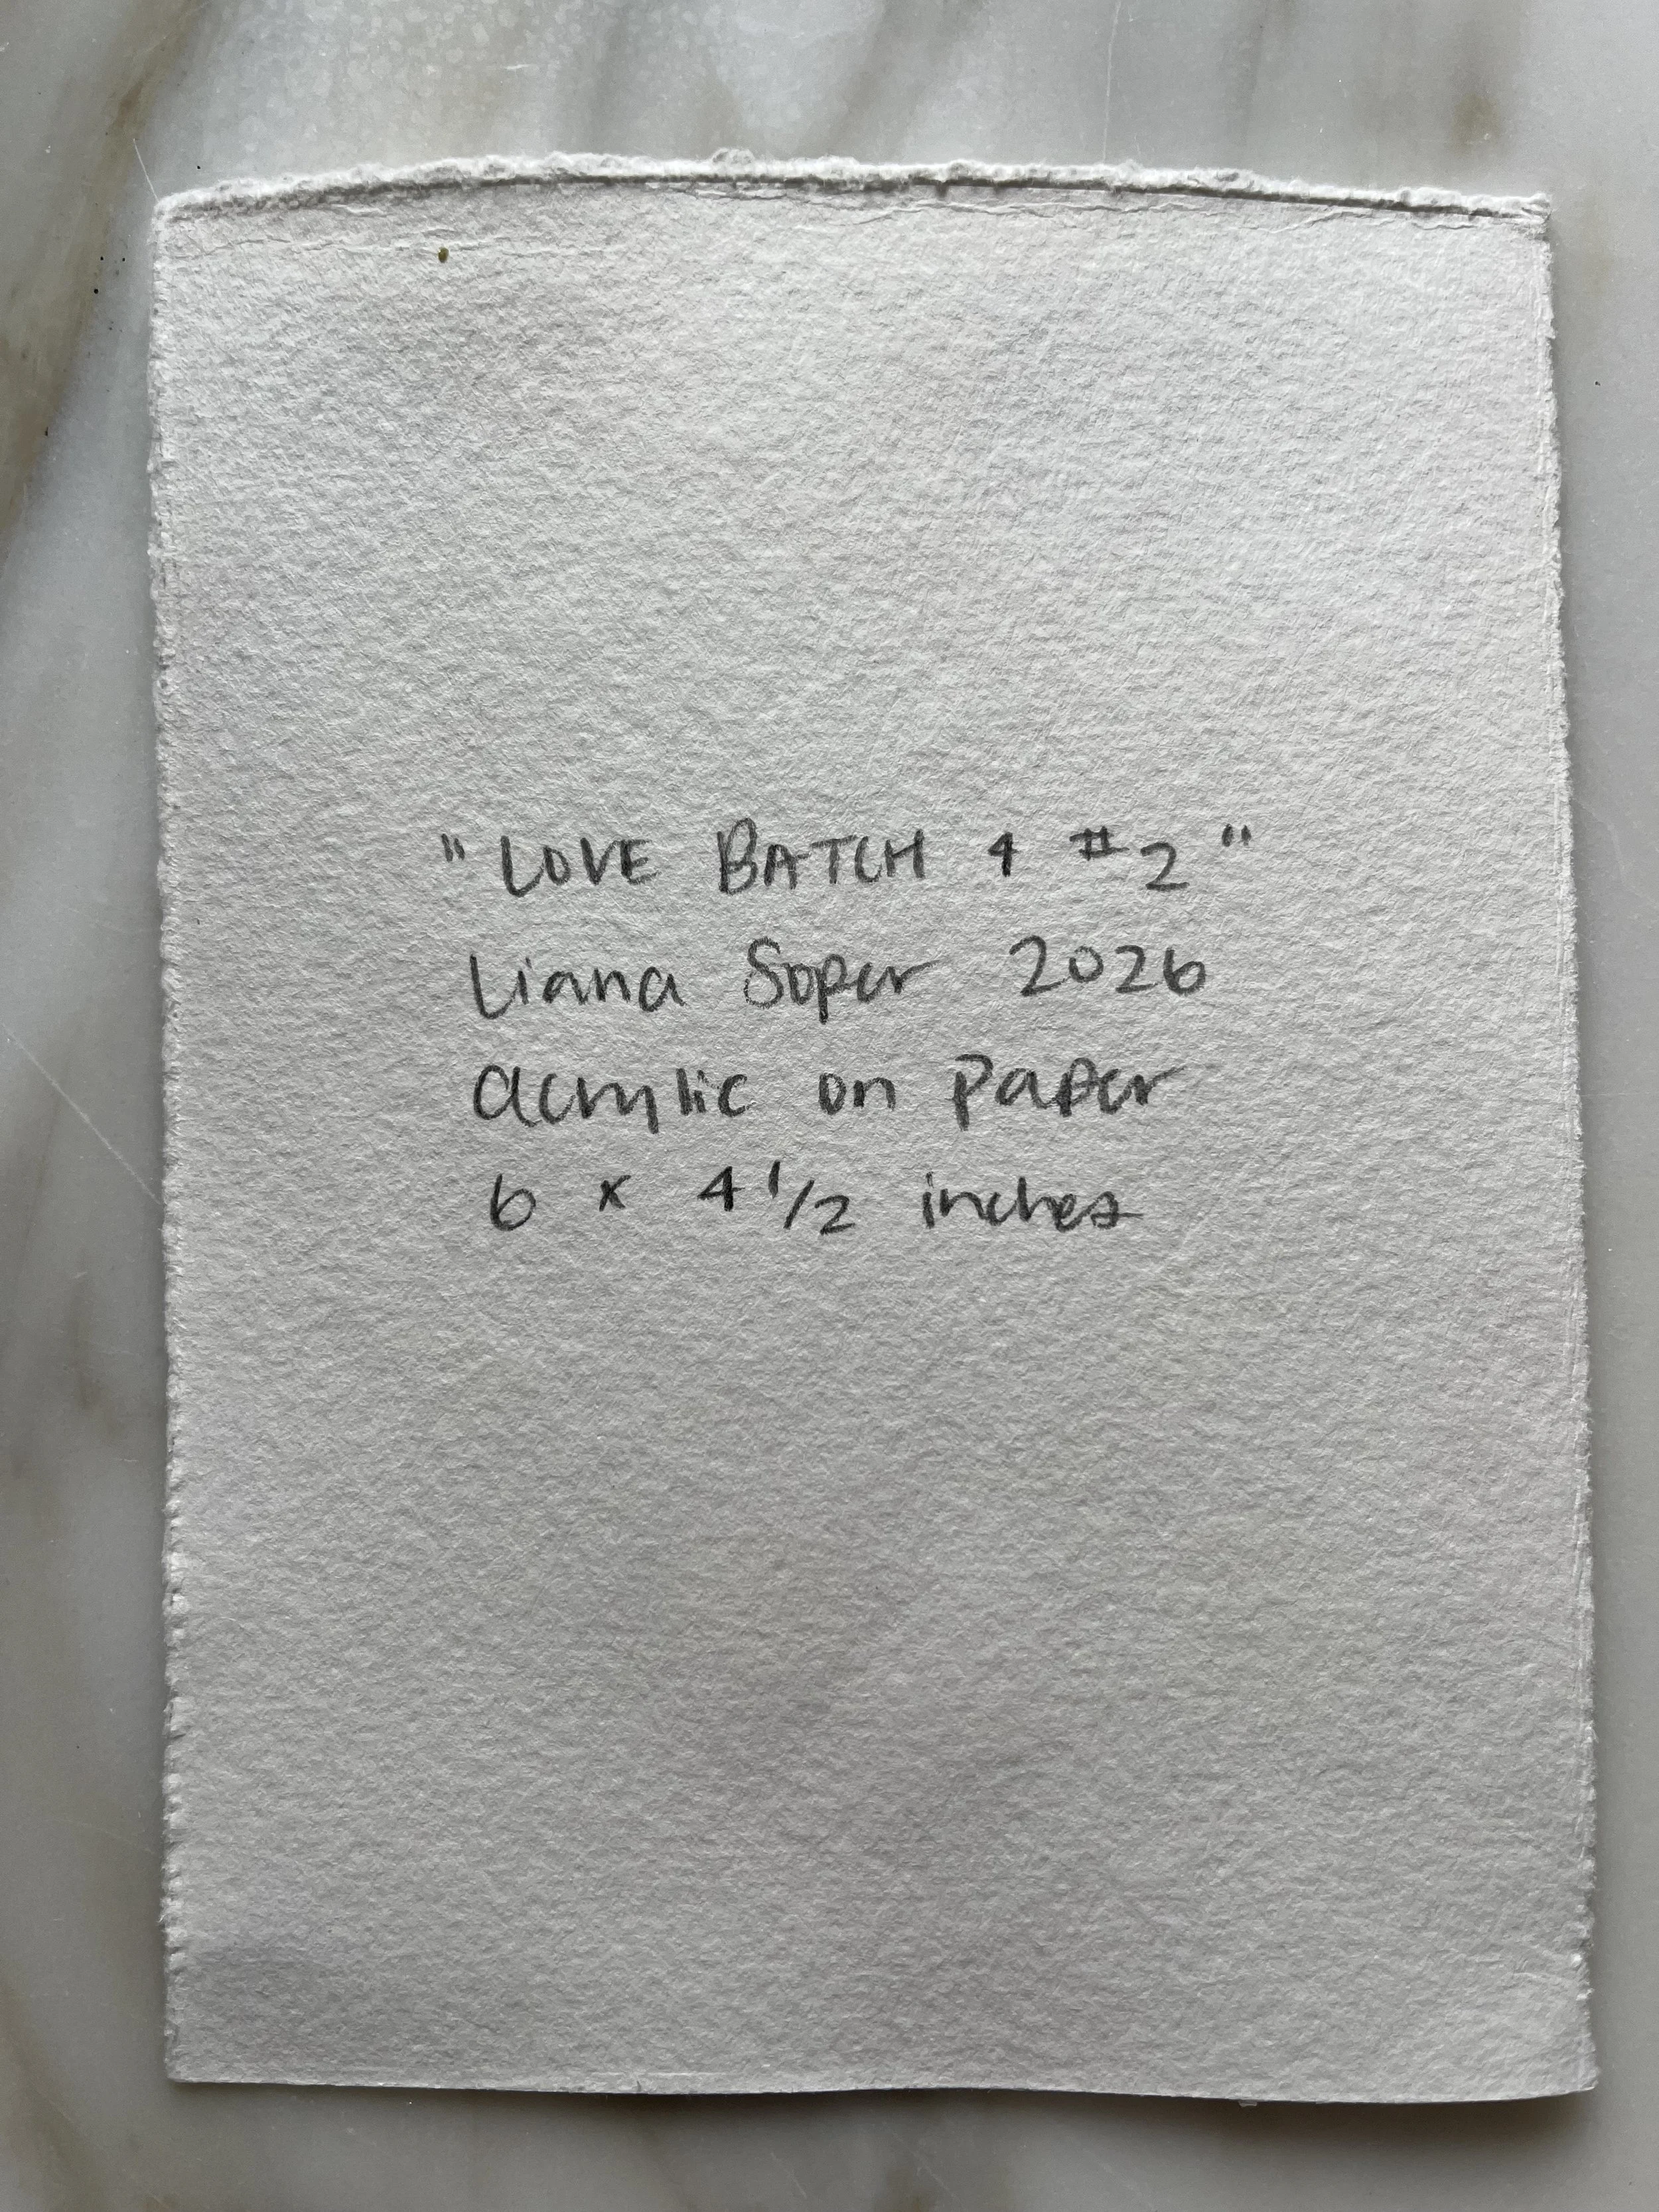 "LOVE BATCH 4 #2"
Liana Soper 2026
acrylic on paper
6 x 4 1/2 inches